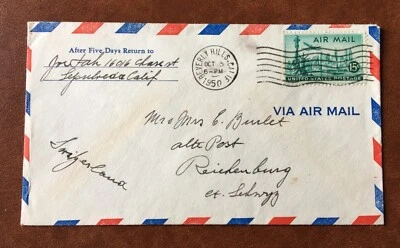 After Five Days Return to
Chase st
Sepulveda Calif.
BEVERLY HILLS, CALIF.
OCT
6 PM
1950
AIR MAIL
15¢
UNITED STATES POSTAGE
VIA AIR MAIL
Mr & Mrs C. Burlet
alte Post
Reichenburg
ct. Schwyz
Switzerland